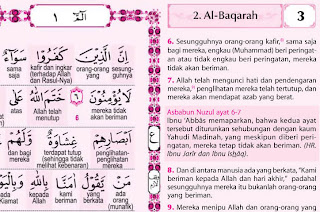 الٓمّٓ
إِنَّ الَّذِيْنَ كَفَرُوْا سَوَآءٌ
sama saja
kafir dan ingkar (terhadap Allah dan Rasul-Nya)
orang-orang yang
sesung-guhnya
لَا يُؤْمِنُوْنَ ٦ خَتَمَ اللّٰهُ
Allah
mereka tidak akan beriman
اَبْصَارِهِمْ غِشَاوَةٌ وَّلَهُمْ
dan bagi mereka
terdapat tutup (sehingga tidak melihat kebenaran)
penglihatan-penglihatan mereka
مَنْ يَّقُوْلُ اٰمَنَّا بِاللّٰهِ
Kiamat
kepada Allah
kami beriman
yang berkata
ada orang (munafik)
2. Al-Baqarah
3
6. Sesungguhnya orang-orang kafir, sama saja
bagi mereka, engkau (Muhammad) beri peringat-
an atau tidak engkau beri peringatan, mereka
tidak akan beriman.
7. Allah telah mengunci hati dan pendengaran
mereka, penglihatan mereka telah tertutup, dan
mereka akan mendapat azab yang berat.
Asbabun Nuzul ayat 6-7
Ibnu 'Abbâs memaparkan, bahwa kedua ayat
tersebut diturunkan sehubungan dengan kaum
Yahudi Madinah, yang meskipun diberi peri-
ngatan, mereka tetap tidak akan beriman. (HR.
Ibnu Jarîr dan Ibnu Ishâq).
8. Dan di antara manusia ada yang berkata, "Kami
beriman kepada Allah dan hari akhir," padahal
sesungguhnya mereka itu bukanlah orang-orang
yang beriman.
9. Mereka menipu Allah dan orang-orang yang